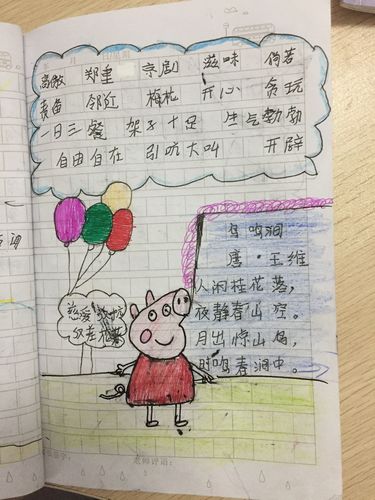 高傲 郑重 京剧 滋味 倘若
邻红 梅花 开心 贪玩
一日三餐 架子十足 生气勃勃
自由自在 引吭大叫 开辟
鸟鸣涧
唐·王维
人闲桂花落，
夜静春山空。
月出惊山鸟，
时鸣春涧中。
慈爱